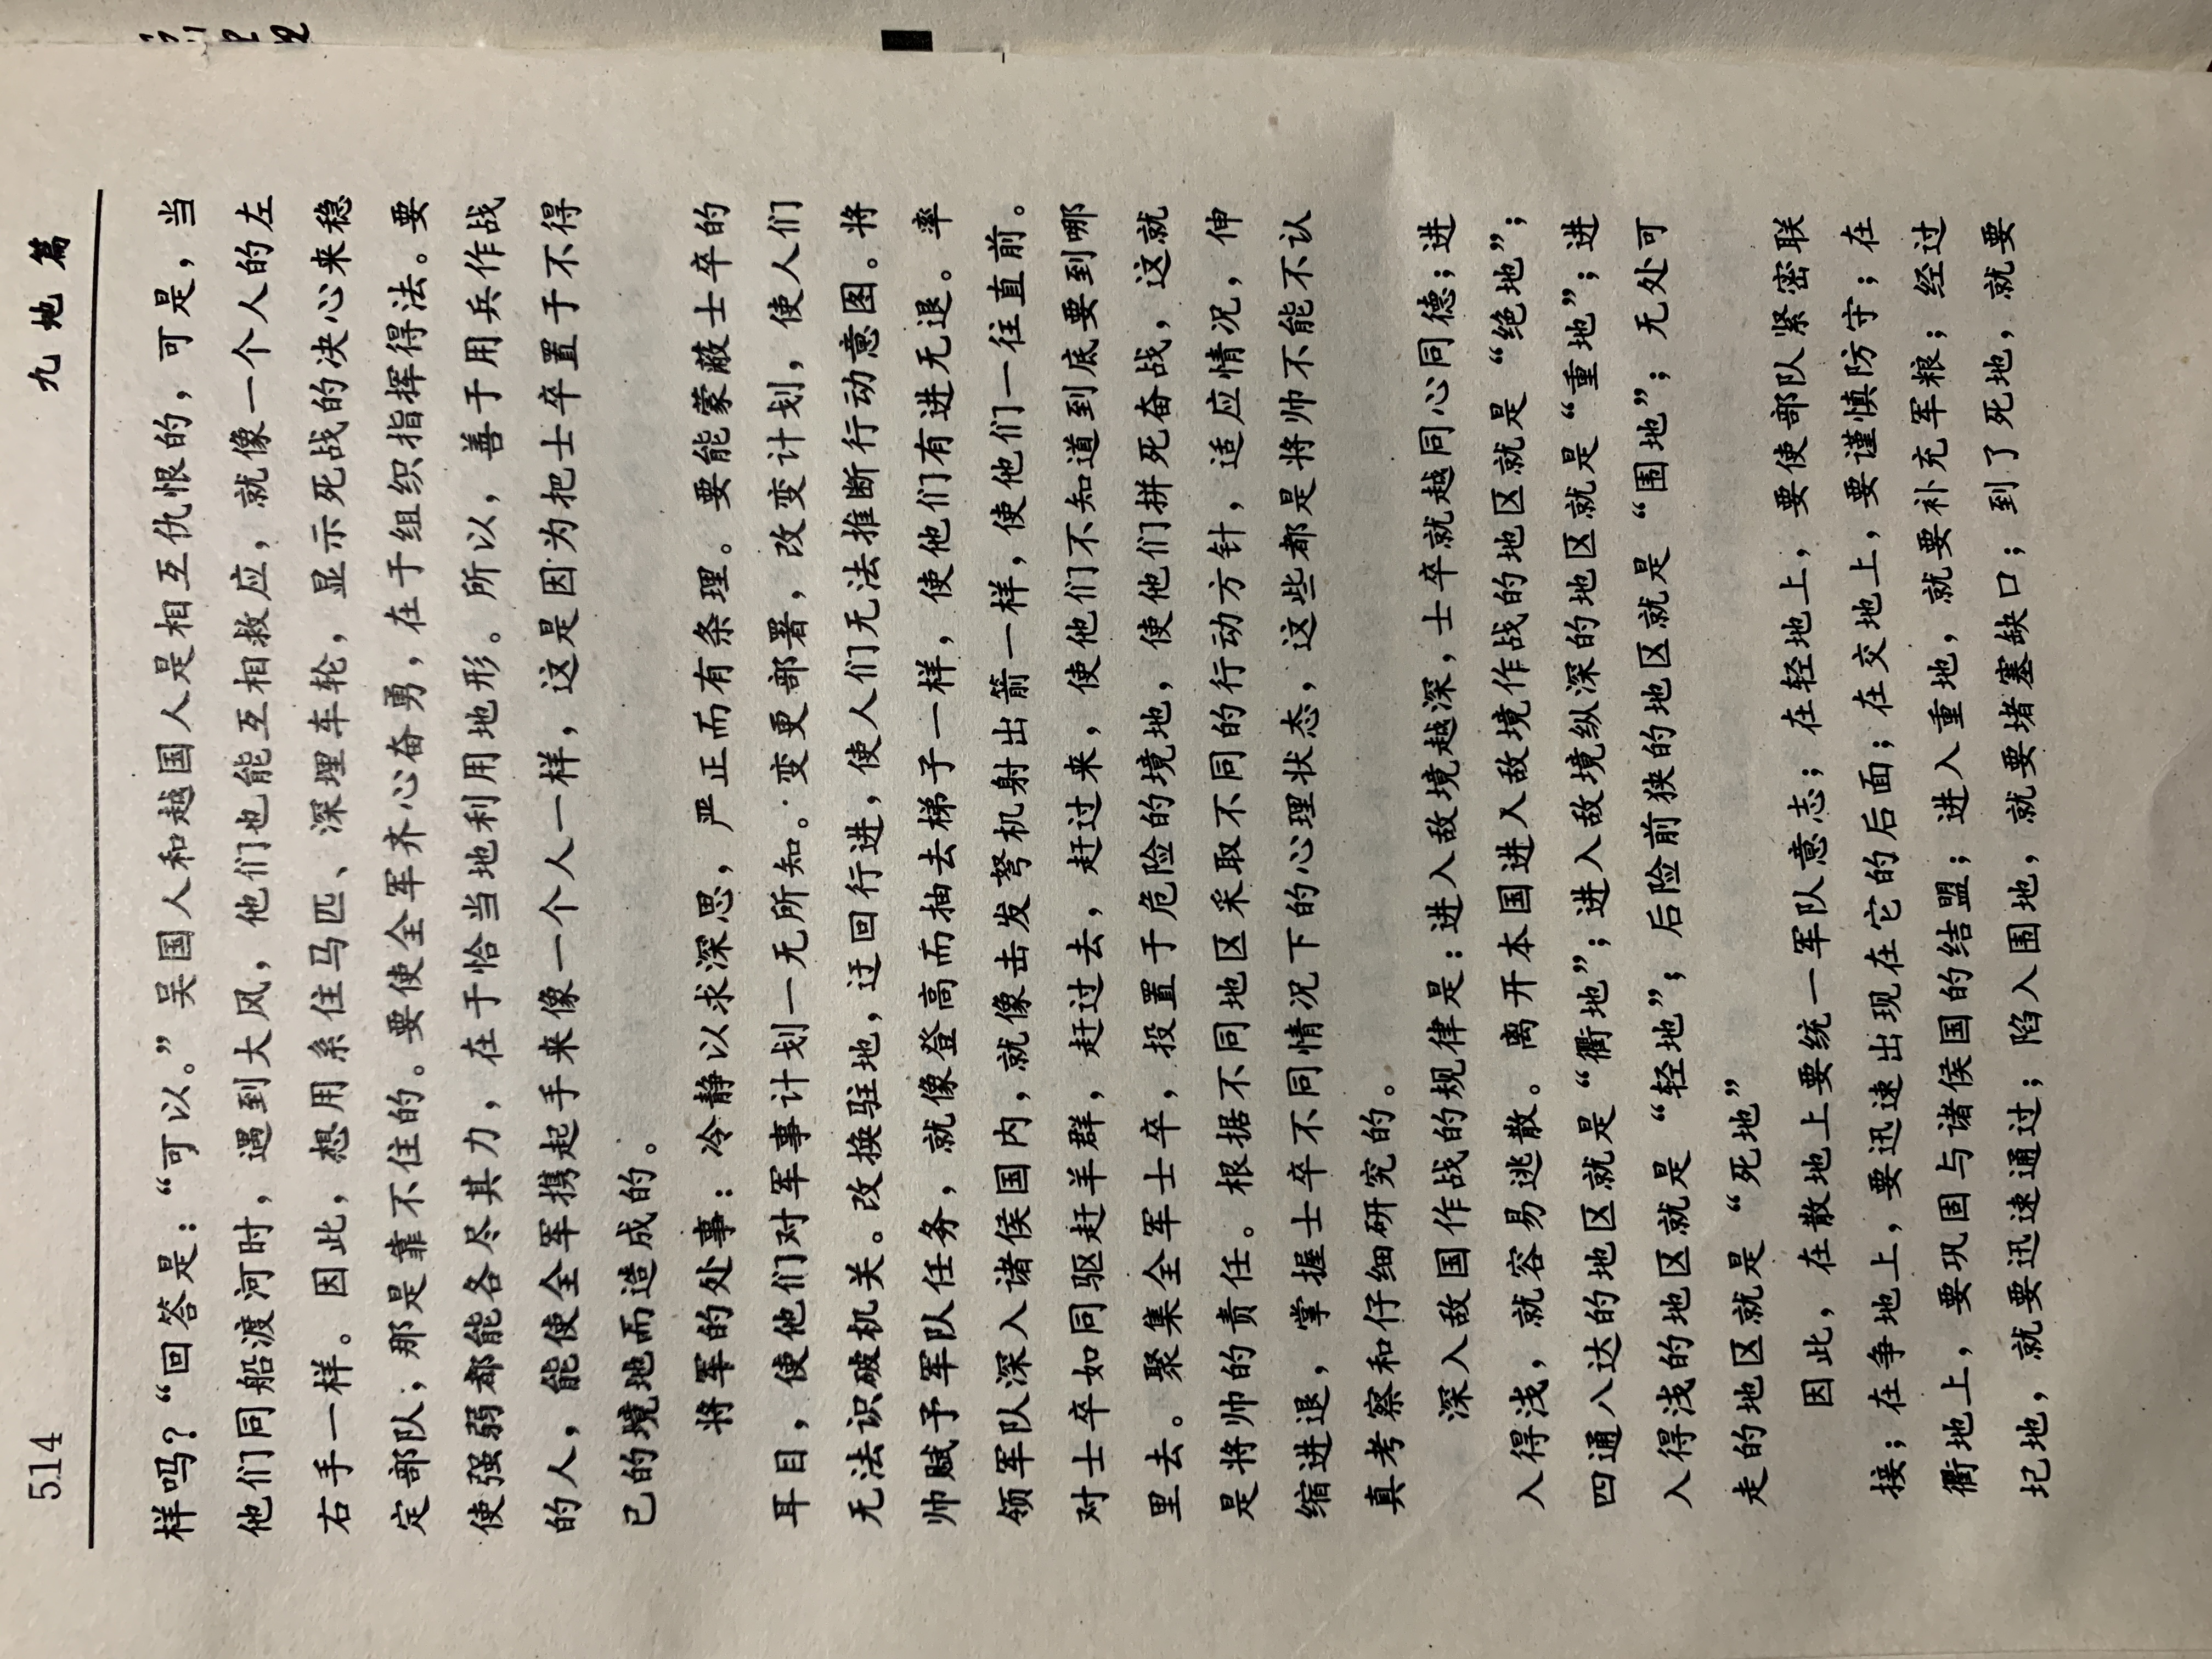 514
九地篇
样吗？“回答是：“可以。”吴国人和越国人是相互仇恨的，可是，当
他们同船渡河时，遇到大风，他们也能互相救应，就像一个人的左
右手一样。因此，想用系住马匹、深埋车轮，显示死战的决心来稳
定部队，那是靠不住的。要使全军齐心奋勇，在于组织指挥得法。要
使强弱都能各尽其力，在于恰当地利用地形。所以，善于用兵作战
的人，能使全军携起手来像一个人一样，这是因为把士卒置于不得
已的境地而造成的。
将军的处事：冷静以求深思，严正而有条理。要能蒙蔽士卒的
耳目，使他们对军事计划一无所知。变更部署，改变计划，使人们
无法识破机关。改换驻地，迂回行进，使人们无法推断行动意图。将
帅赋予军队任务，就像登高而抽去梯子一样，使他们有进无退。率
领军队深入诸侯国内，就像击发弩机射出箭一样，使他们一往直前。
对士卒如同驱赶羊群，赶过去，赶过来，使他们不知道到底要到哪
里去。聚集全军士卒，投置于危险的境地，使他们拼死奋战，这就
是将帅的责任。根据不同地区采取不同的行动方针，适应情况，伸
缩进退，掌握士卒不同情况下的心理状态，这些都是将帅不能不认
真考察和仔细研究的。
深入敌国作战的规律是：进入敌境越深，士卒就越同心同德；进
入得浅，就容易逃散。离开本国进入敌境作战的地区就是“绝地”；
四通八达的地区就是“衢地”；进入敌境纵深的地区就是“重地”；进
入得浅的地区就是“轻地”；后险前狭的地区就是“围地”；无处可
走的地区就是“死地”
因此，在散地上要统一军队意志；在轻地上，要使部队紧密联
接；在争地上，要迅速出现在它的后面；在交地上，要谨慎防守；在
衢地上，要巩固与诸侯国的结盟；进入重地，就要补充军粮；经过
圮地，就要迅速通过；陷入围地，就要堵塞缺口；到了死地，就要